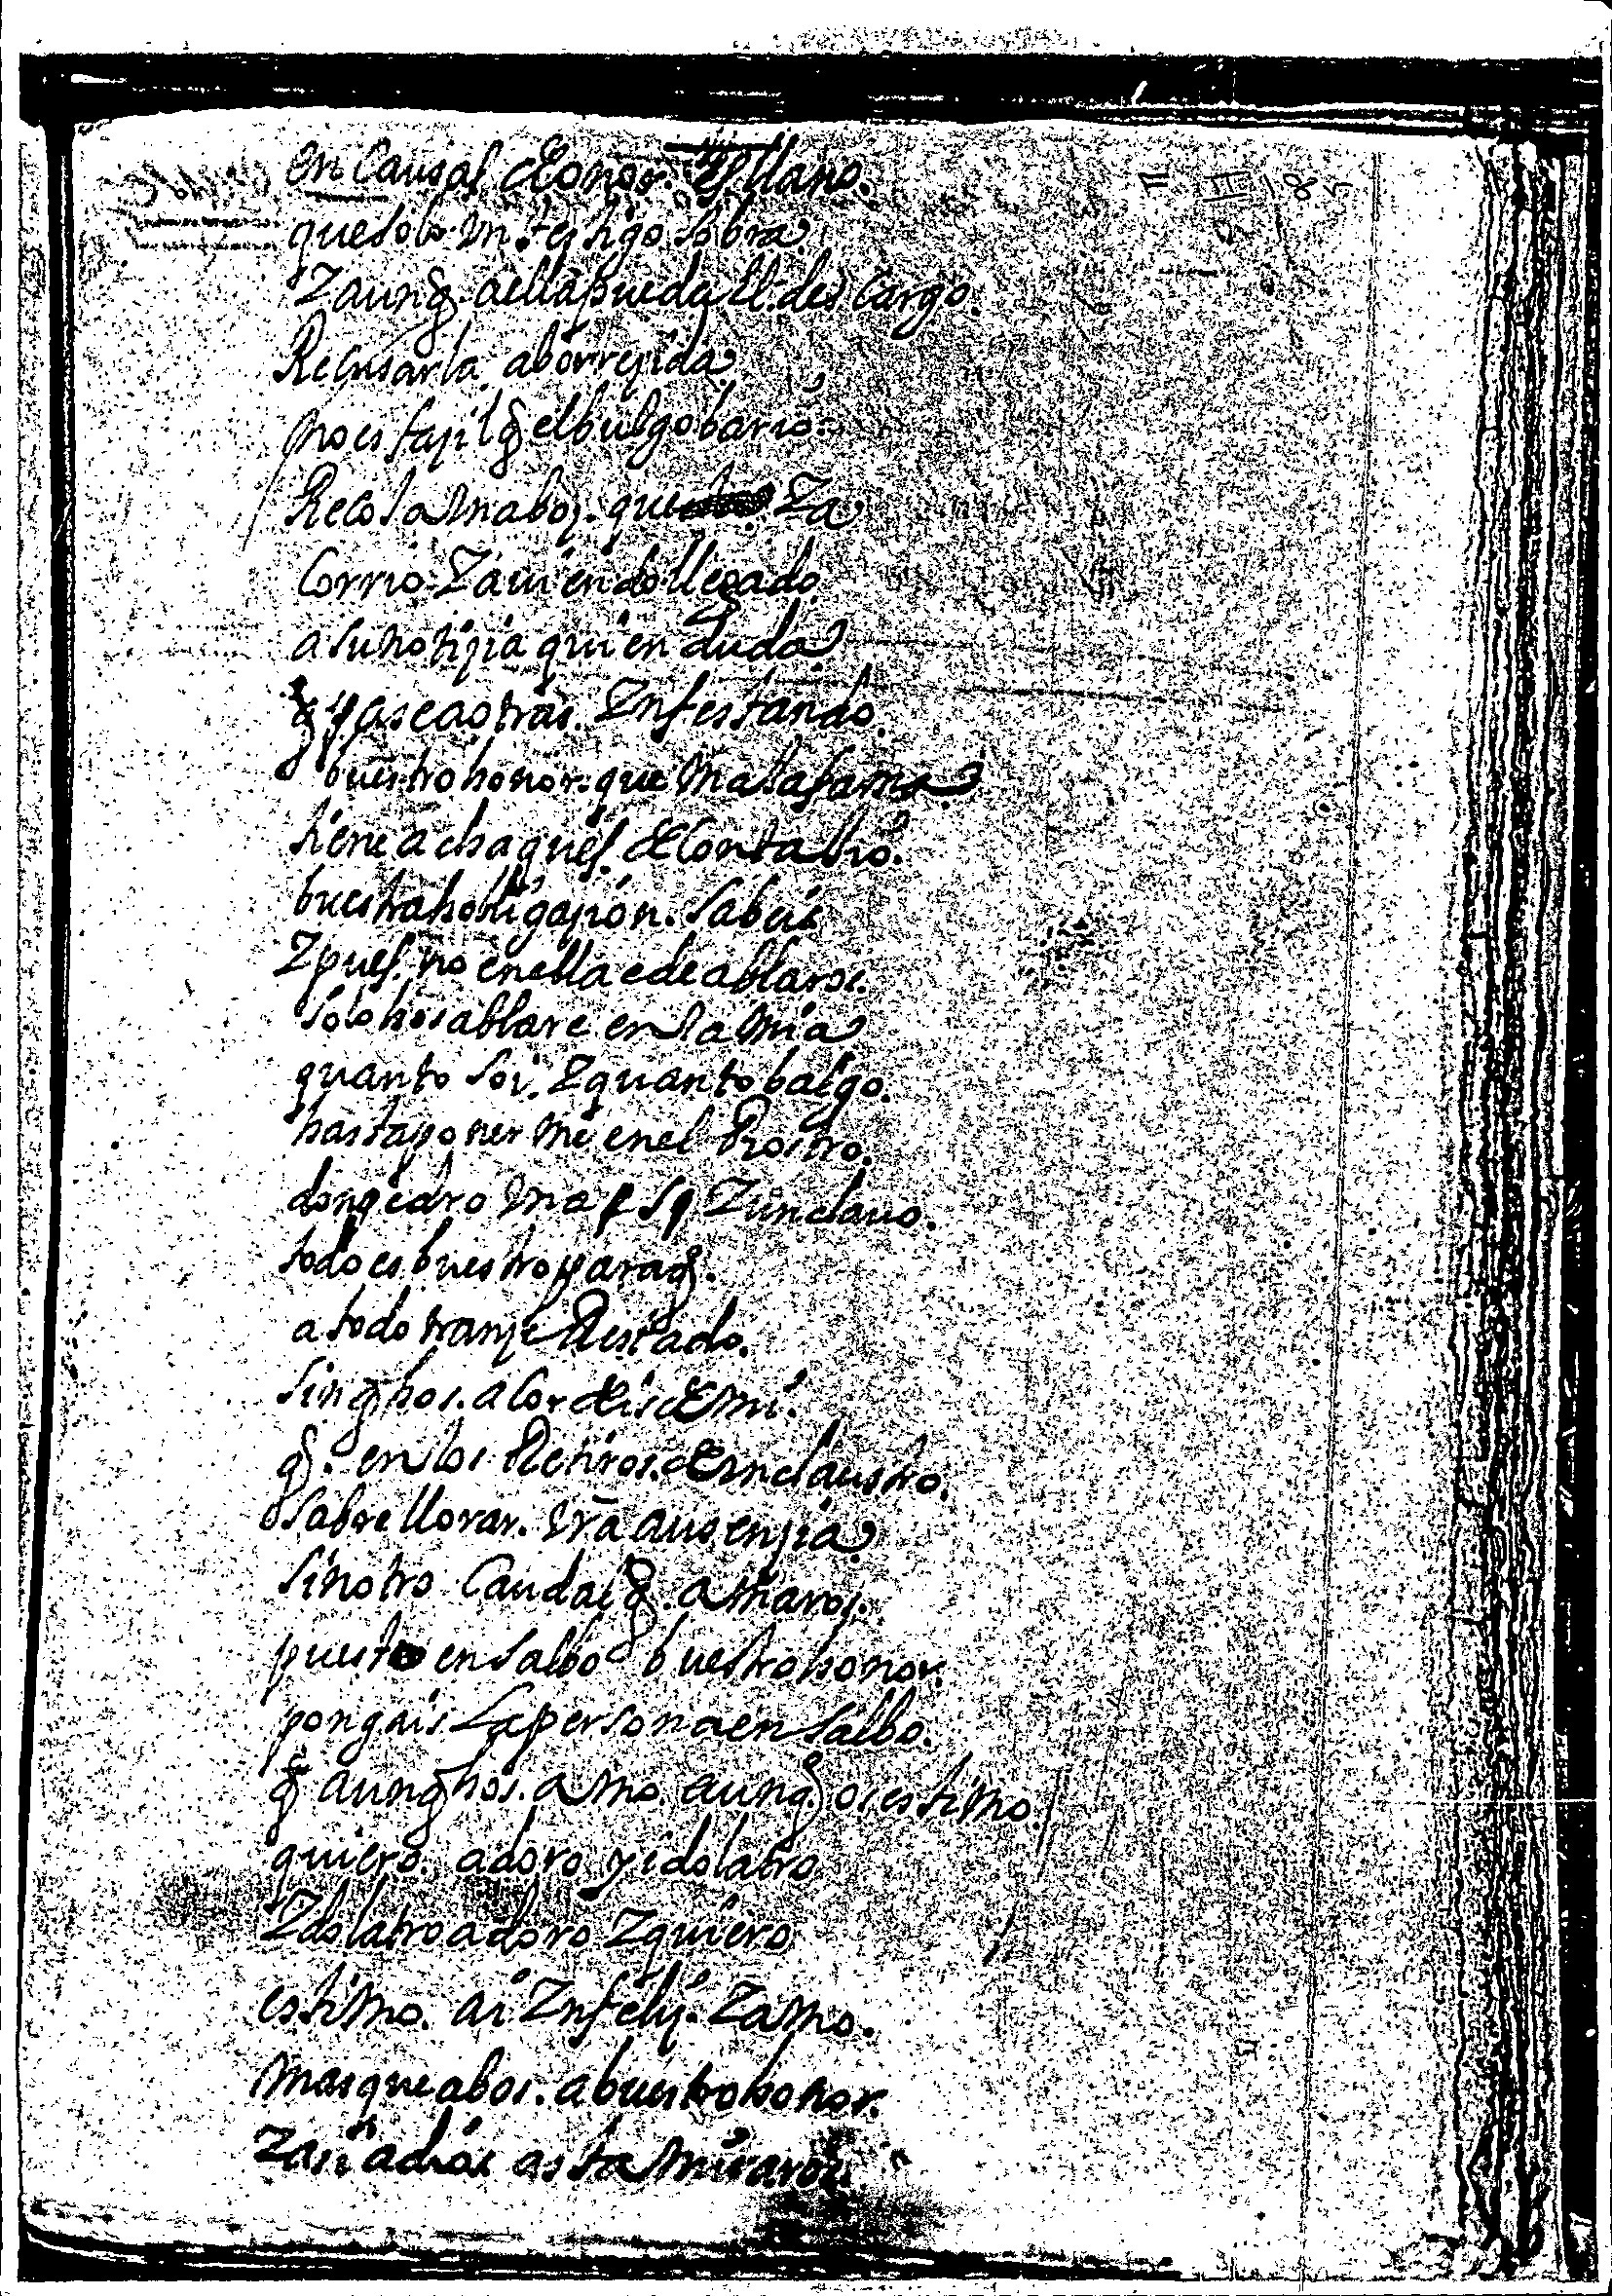 en causas de onor. es llano.
que solo un testigo sobra
Y aunq. a ella pueda el descargo
Recusarla aborreçida
no es façil q el bulgo bario
Recoja una boz. que Ya
Corrio. Y auiendo llegado
a su notiçia quien duda
q pase a otras. Ynfestando
buestro honor. que mala fama
tiene achaques. de contaxio.
buestra hobligaçion. sabeis
Y pues. no en ella e de ablaros.
solo hos ablare en la mia
quanto soi. Y quanto balgo.
hasta poner me en el Rostro.
don pedro una S Y un clauo.
todo es buestro para q.
a todo tranze Restado.
sin q hos. acordeis de mi.
q. en los Retiros. de un claustro.
sabre llorar. vra ausençia
sin otro Caudal q. amaros.
puesto en salbo buestro honor.
pongais La persona en salbo.
q aunq hos. amo. aunq os estimo.
quiero. adoro y idolatro
Ydolatro adoro Y quiero
estimo. ai Ynfeliz. Y amo.
mas que a bos. a buestro honor.
Y asi adios asta miraros